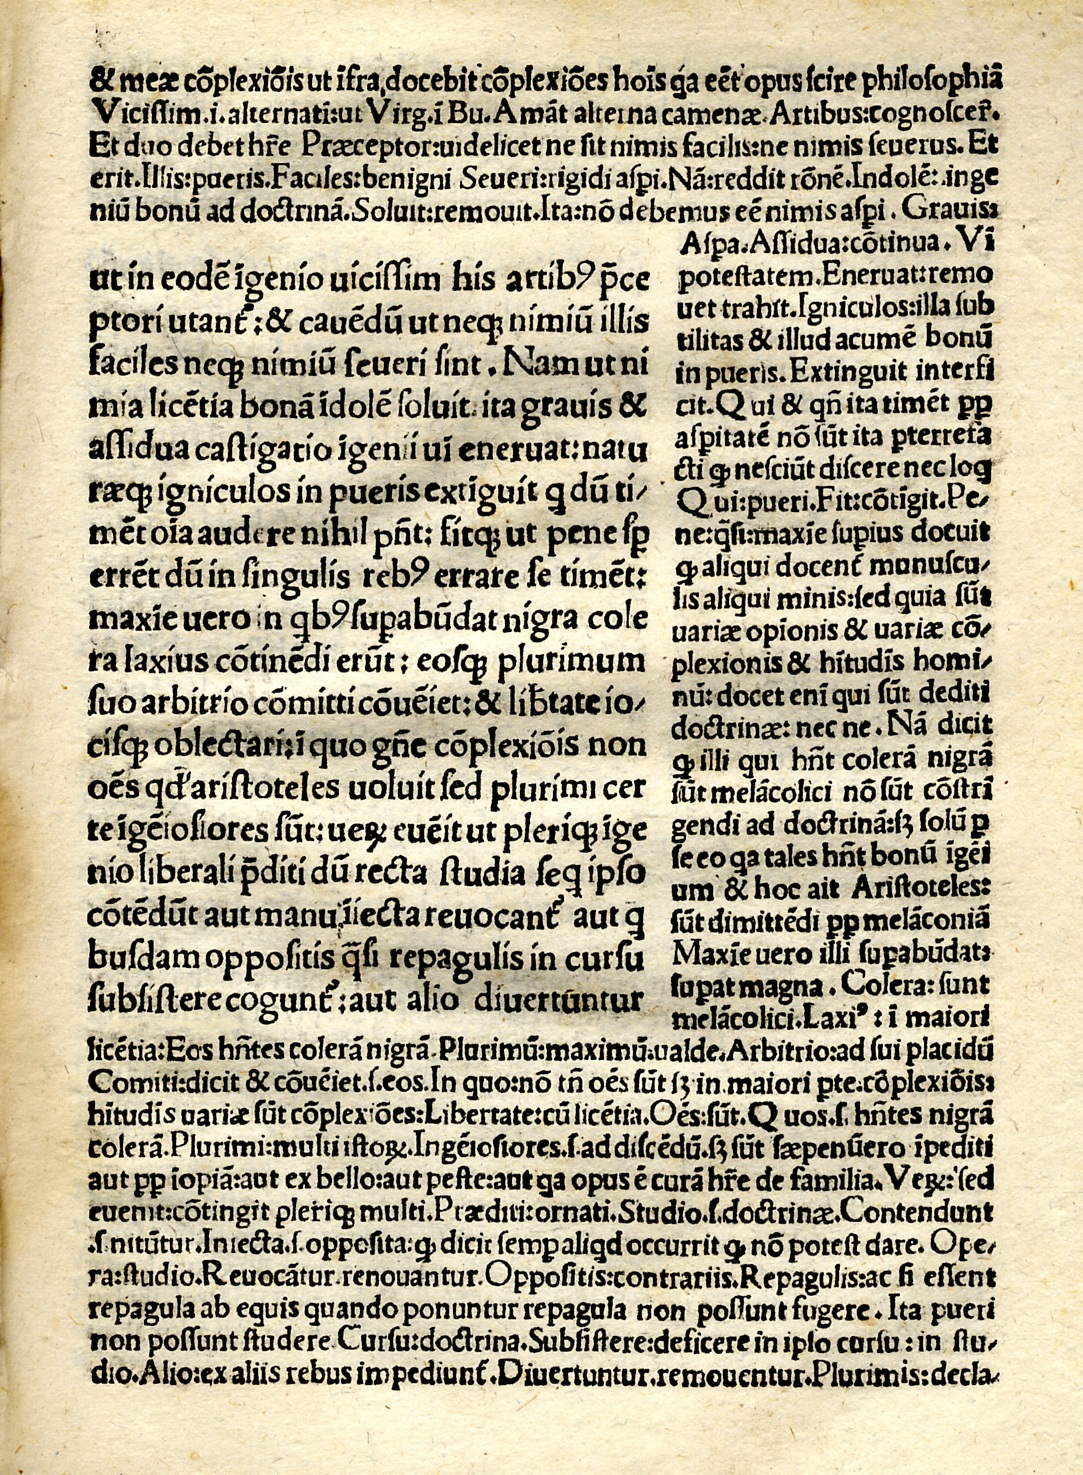 & meæ cõplexiõis ut ĩfra docebit cõplexiões hoĩs qa eẽt opus scire philosophiã
Vicissim.i.alternatĩ:ut Virg.ĩ Bu.Amãt alterna camenæ.Artibus:cognoscer̃.
Et duo debet hr̃e Præceptor:uidelicet ne sit nimis facilis:ne nimis seuerus. Et
erit.Illis:pueris.Faciles:benigni Seueri:rigidi aspi.Nã:reddit rõnẽ.Indolẽ:.inge
niũ bonũ ad doctrinã.Soluit:remouit.Ita:nõ debemus eẽ nimis asꝑi . Grauis:
ut in eodẽ ĩgenio uicissim his artibꝰ p̃ce
ptori utant᷑;& cauẽdũ ut neqꝫ nimiũ illis
faciles neqꝫ nimiũ seueri sint . Nam ut ni
mia licẽtia bonã ĩdolẽ soluit.ita grauis &
assidua castigatio ĩgenii uĩ eneruat:natu
ræqꝫ igniculos in pueris extĩguit q dũ ti/
mẽt oĩa audere nihil pñt; fitqꝫ ut pene sꝑ
errẽt dũ in singulis rebꝰ errare se timẽt:
maxĩe uero in qbꝰ suꝑabũdat nigra cole
ra laxius cõtinẽdi erũt; eosqꝫ plurimum
suo arbitrio cõmitti cõuẽiet:& lib̃tate io/
cisqꝫ oblectari:ĩ quo gñe cõplexiõis non
oẽs qđ aristoteles uoluit sed plurimi cer
te ĩgẽiosiores sũt:ueꝝ euẽit ut pleriqꝫ ĩge
nio liberali p̃diti dũ recta studia seq ipso
cõtẽdũt aut manu ĩiecta reuocant᷑ aut q
busdam oppositis q̃si repagulis in cursu
subsistere cogunt᷑:aut alio diuertũntur
Aspa.Assidua:cõtinua . Vĩ
potestatem.Eneruat:remo
uet trahit.Igniculos:illa sub
tilitas & illud acumẽ bonũ
in pueris.Extinguit interfi
cit.Qui & qñ ita timẽt ꝓꝑ
asꝑitatẽ nõ sũt ita ꝑterrefa
cti ꝙ nesciũt discere nec loq
Qui:pueri.Fit:cõtĩgit.Pe/
ne:q̃si:maxĩe suꝑius docuit
ꝙ aliqui docent᷑ munuscu/
lis aliqui minis:sed quia sũt
uariæ opĩonis & uariæ cõ/
plexionis & hĩtudĩs homi/
nũ:docet enĩ qui sũt dediti
doctrinæ: nec ne . Nã dicit
ꝙ illi qui hñt colerã nigrã
sũt melãcolici nõ sũt cõstrĩ
gendi ad doctrinã:sꝫ solũ ꝑ
se eo qa tales hñt bonũ ĩgẽi
um & hoc ait Aristoteles:
sũt dimittẽdi ꝓꝑ melãconiã
Maxĩe uero illi suꝑabũdat:
suꝑat magna . Colera: sunt
melãcolici.Laxiꝰ: ĩ maiori
licẽtia:Eos hñtes colerã nigrã.Plurimũ:maximũ:ualde.Arbitrio:ad sui placidũ
Comiti:dicit & cõuẽiet.s.eos.In quo:nõ tñ oẽs sũt sꝫ in maiori ꝑte.cõplexiõis:
hĩtudĩs uariæ sũt cõplexiões:Libertate:cũ licẽtia.Oẽs:sũt.Quos.s.hñtes nigrã
colerã.Plurimi:multi istoꝝ.Ingẽiosiores.s.ad discẽdũ.sꝫ sũt sæpenũero ĩpediti
aut ꝓꝑ ĩopiã:aut ex bello:aut peste:aut qa opus ẽ curã hr̃e de familia.Veꝝ:sed
euenit:cõtingit pleriqꝫ multi.Præditi:ornati.Studio.s.doctrinæ.Contendunt
.s.nitũtur.Iniecta.s.opposita:ꝙ dicit semꝑ aliqd occurrit ꝙ nõ potest dare. Ope/
ra:studio.Reuocãtur.renouantur.Oppositis:contrariis.Repagulis:ac si essent
repagula ab equis quando ponuntur repagula non possunt fugere . Ita pueri
non possunt studere Cursu:doctrina.Subsistere:deficere in ipso cursu : in stu/
dio.Alio:ex aliis rebus impediunt᷑.Diuertuntur.remouentur.Plurimis:decla/